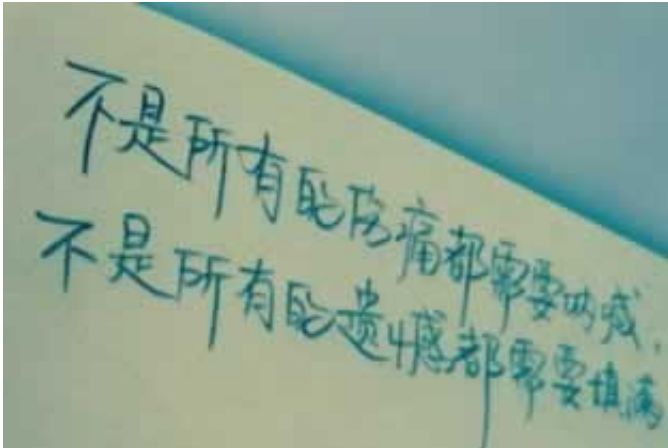 不是所有的伤痛都需要呐喊,
不是所有的遗憾都需要填满